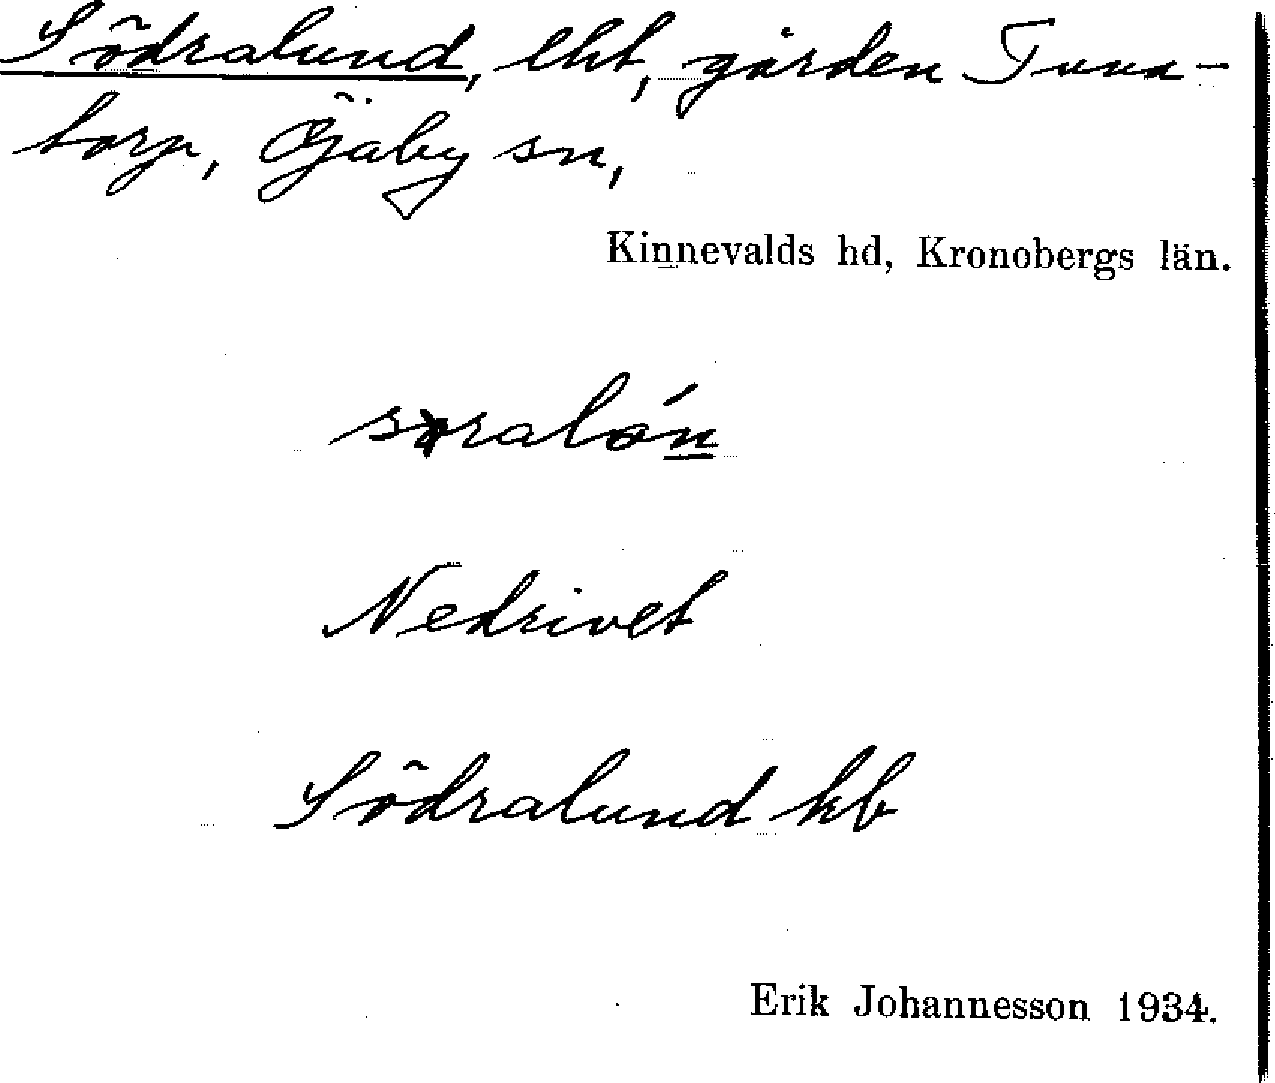 Södralund, lht, gården Tuna-
torp, Öjaby sn,
Kinnevalds hd, Kronobergs län.
Nedrivet
Södralund kb
Erik Johannesson 1934.